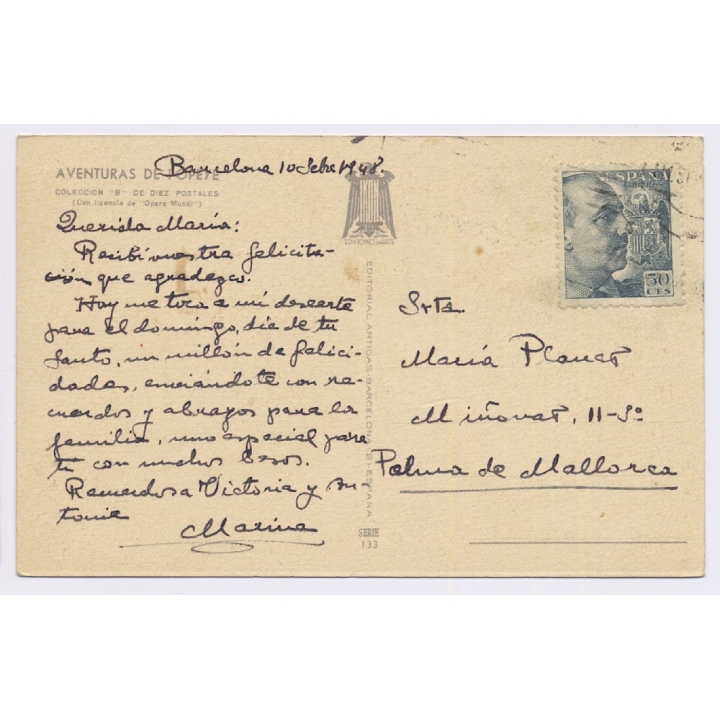 Barcelona 10 Sebre 1948.
AVENTURAS DE POPEYE
COLECCION "B" DE DIEZ POSTALES
(Con licencia de "Opera Mundi")
EDICIONES de ARTE
Querida María:
Recibí vuestra felicita-
ción que agradezco.
Hoy me toca a mi desearte
para el domingo, día de tu
Santo, un millón de felici-
dades, enviándote con re-
cuerdos y abrazos para la
familia, uno especial para
ti con muchos besos.
Recuerdos a Victoria y An-
tonia
Marina
EDITORIAL ARTIGAS-BARCELONA
ESPAÑA
SERIE
133
ESPAÑA
CORREOS
50
CTS
Srta.
María Planas
Miñonas, 11-3º
Palma de Mallorca